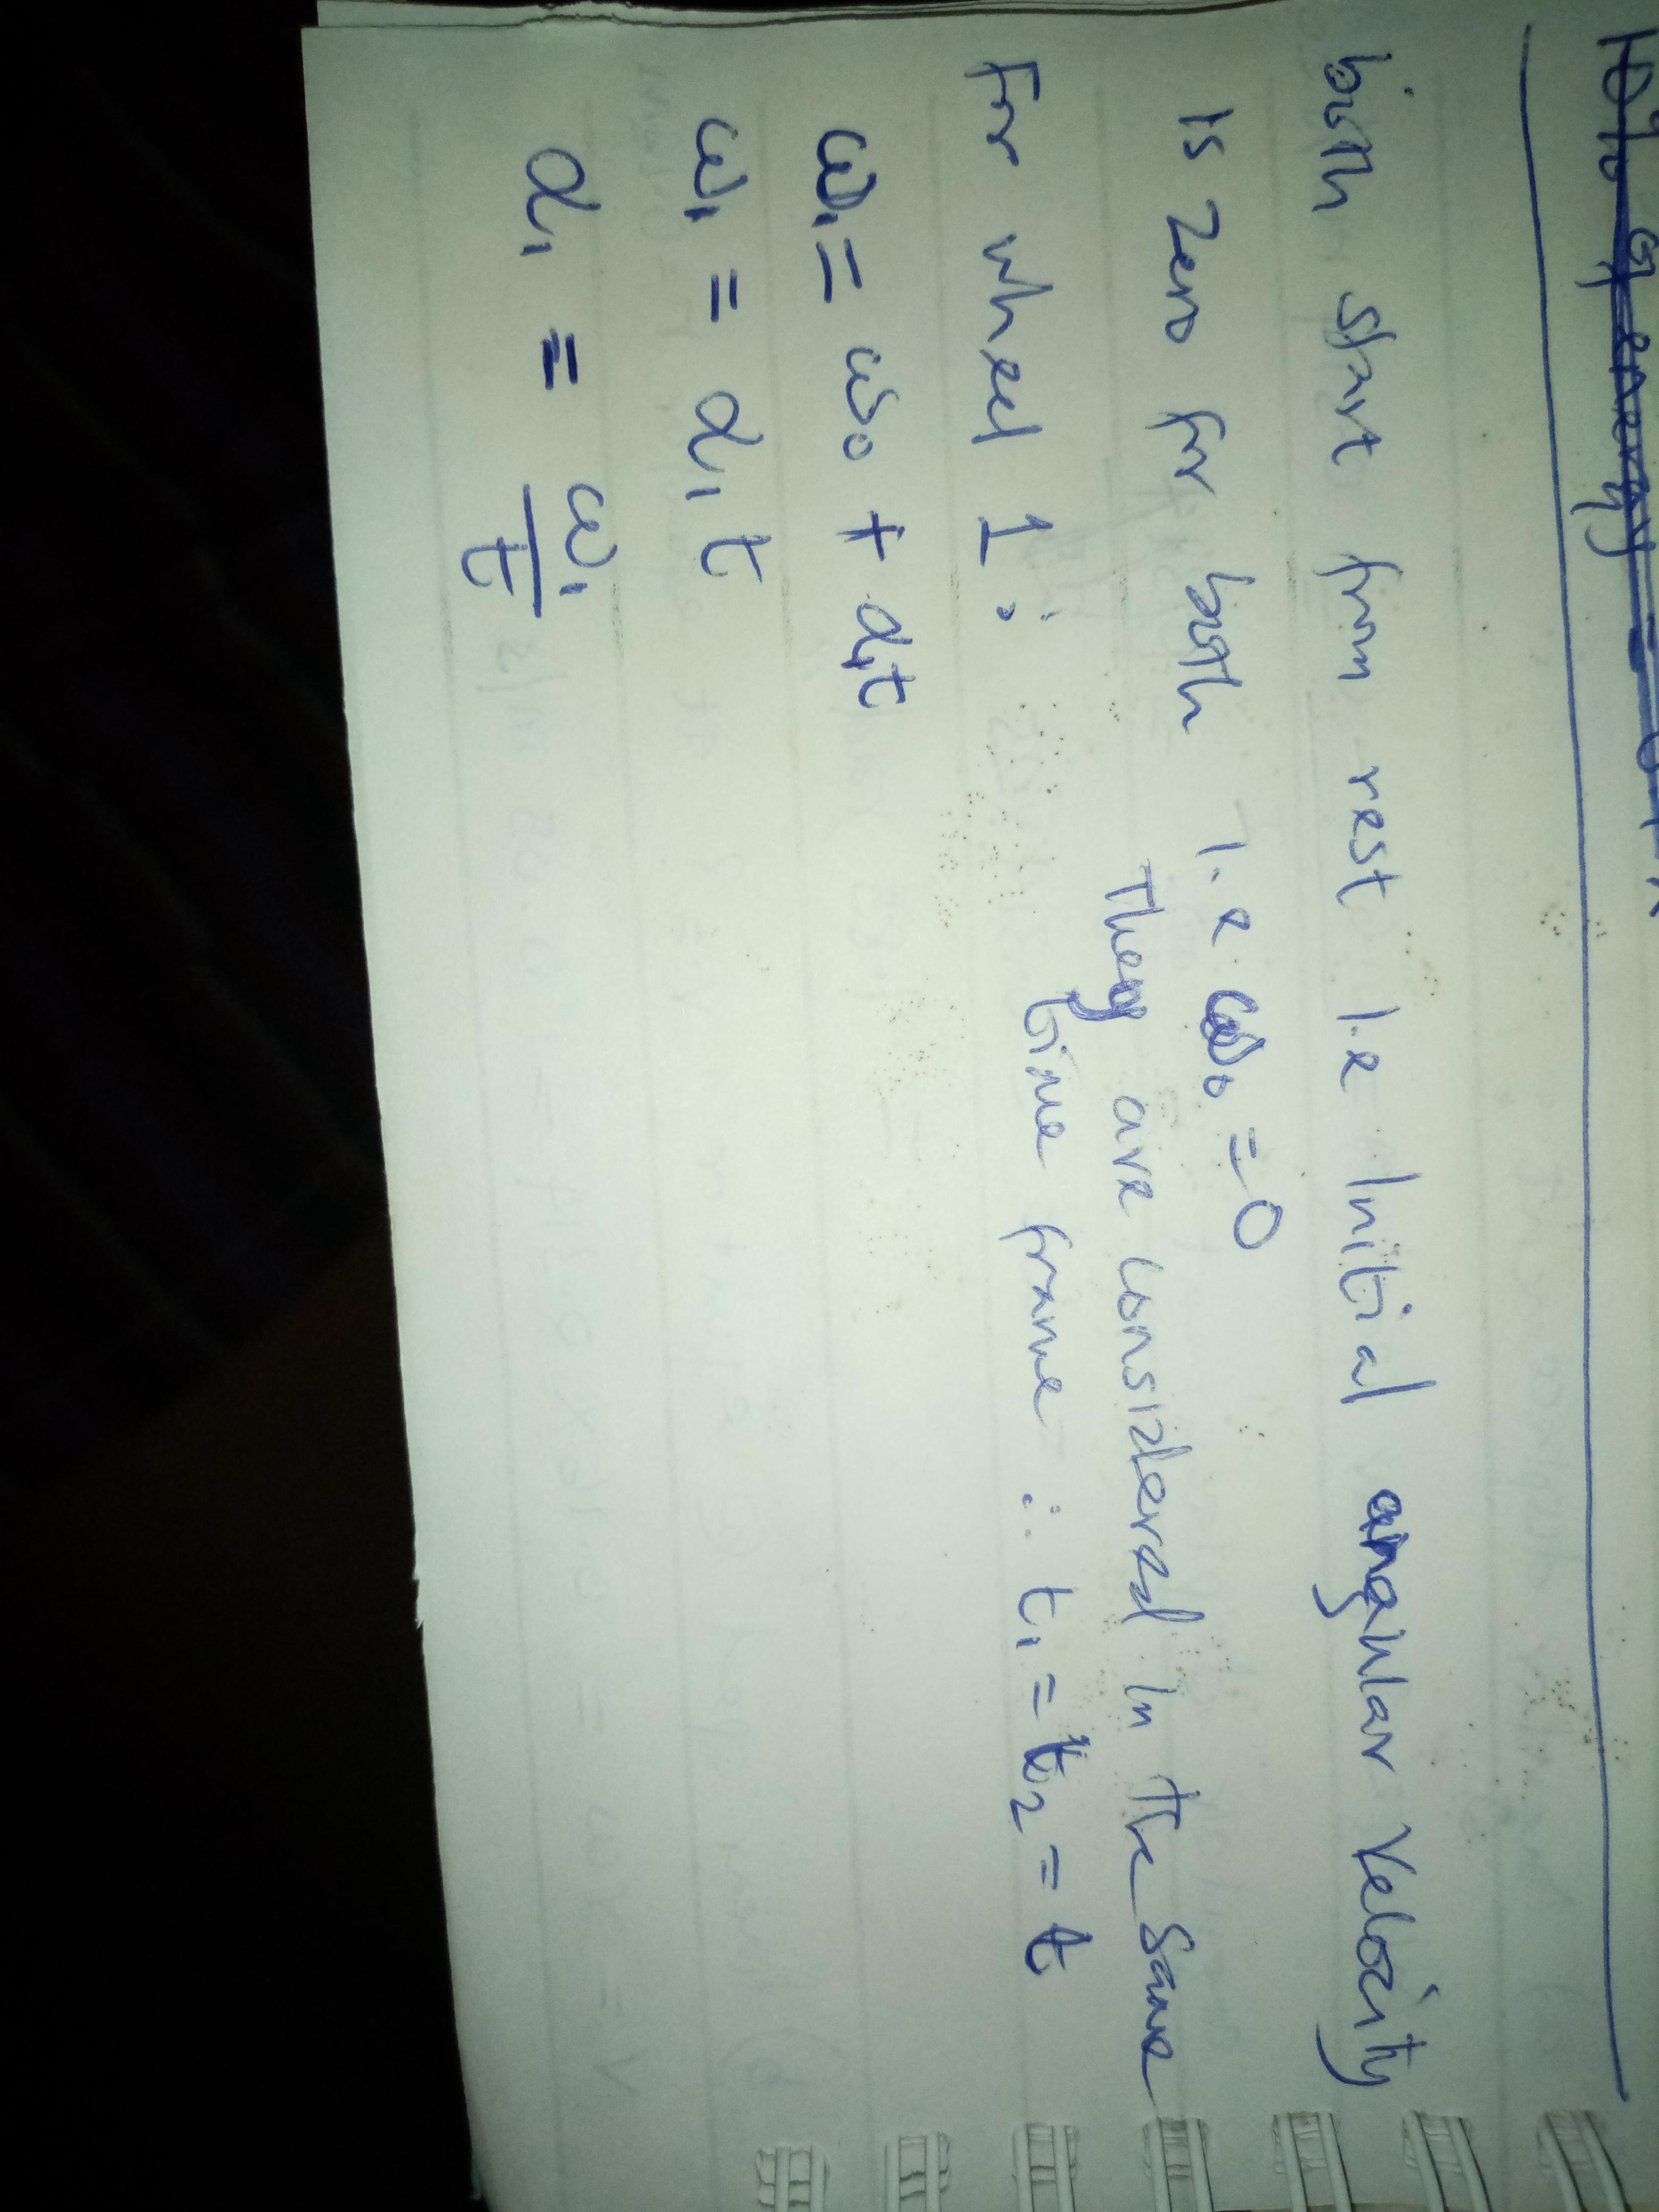 both start from rest i.e Initial angular velocity
is zero for both i.e ω₀ = 0
They are considered in the same
time frame ∴ t₁ = t₂ = t
For wheel 1:
ω₁ = ω₀ + α₁t
ω₁ = α₁t
α₁ = ω₁/t